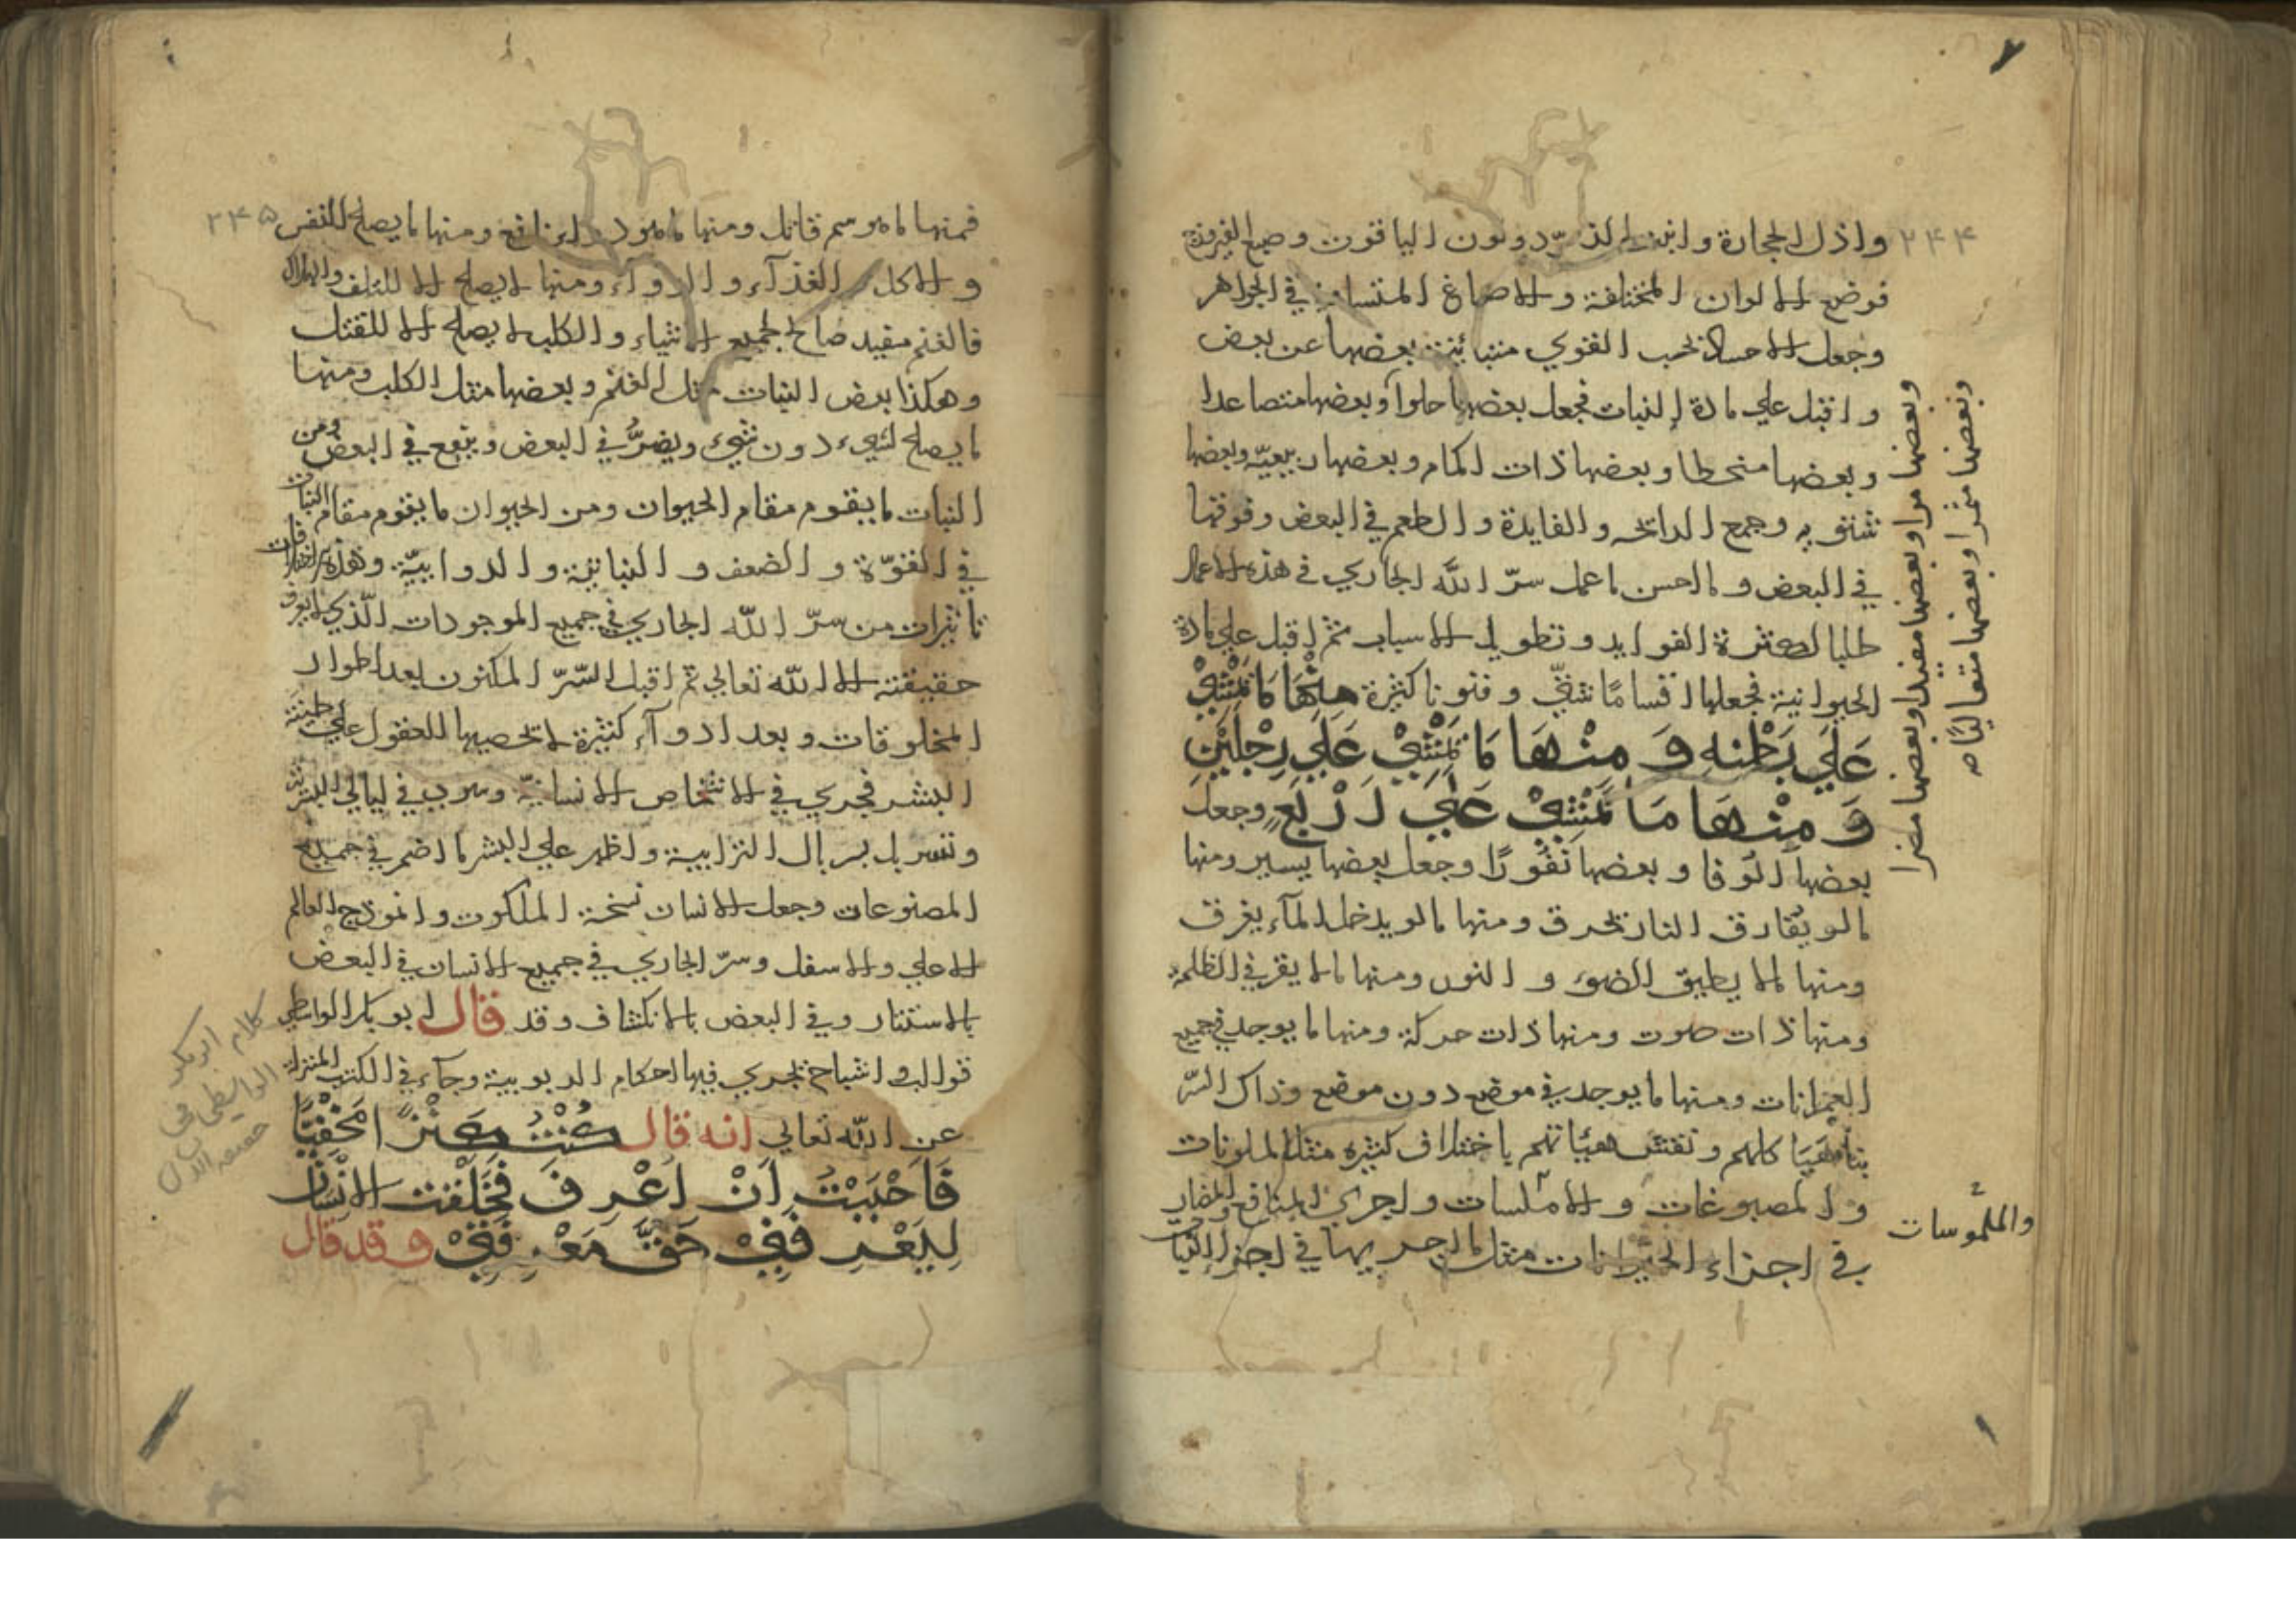 ٢٤٤
واذل الحجارة وابن الدرّ دولون الياقوت وصبغ الفيروزج
فوضع الالوان المختلفة والاصباغ في الجواهر
وجعل الاحساد القوي متباينة بعضها عن بعض
واقبل علي مادة النبات فجعل بعضها حلوا وبعضها متصاعدا
وبعضها منحطا وبعضها ذات اكمام وبعضها ربيعيّة وبعضها
شتويه وجمع الرائحه والفايدة والطعم في البعض وفرقها
في البعض وما احسن ما عمل سرّ الله الجاري في هذه الاعمال
طلبا لكثرة الفوايد وتطويل الاسباب ثم اقبل علي مادة
الحيوانية فجعلها اقسامًا شتّي وفنونا كثيرة مِنْهَا مَا يَمْشِيْ
عَلَي بَطْنِهِ وَ مِنْهَا مَا يَمْشِيْ عَلَي رِجْلَيْنِ
وَ مِنْهَا مَا يَمْشِيْ عَلَي اَرْبَعٍ وجعل
بعضها الوفا وبعضها نفورًا وجعل بعضها يسير ومنها
ما لو يفارق النار يحرق ومنها ما لو يدخل المآء يغرق
ومنها ما لا يطيق الضوء و النور ومنها ما لا يقر في الظلمة
ومنها ذات صوت ومنها ذات حركة ومنها ما يوجد في جميع
العمرانات ومنها ما يوجد في موضع دون موضع وذاك السّر
كلهم باختلاف كثيره مثل الملونات
و المصبوغات و واجري المنافع والمضار
في اجزاء الحيوانات مثل ما اجريها في اجزا النبات
وبعضها مرا وبعضها مفيدا وبعضها مضرا
وبعضها مثمرا وبعضها
والملموسات
٢٤٥
فمنها ما هو سم قاتل ومنها ما هو دواء نافع ومنها ما يصلح للنفس
و الاكل و الغذآء و الدوآء ومنها لا يصلح الا للتلف والهلاك
فالغنم مفيد صالح لجميع الاشياء والكلب لا يصلح الا للقتل
وهكذا بعض النبات مثل الغنم وبعضها مثل الكلب ومنها
ما يصلح لشيء دون شيء ويضرُّ في البعض وينفع في البعض ومن
النبات ما يقوم مقام الحيوان ومن الحيوان ما يقوم مقام النبات
في القوّة و الضعف و النباتية و الدوابيّة وهذه
تاثيرات من سرّ الله الجاري في جميع الموجودات الّذي لا يعرف
حقيقته الا الله تعالي ثم اقبل السّرّ المكنون بعد اطوار
المخلوقات وبعد ادوآر كثيرة لا تحصيها العقول علي طينة
البشر فجري في الاشخاص الانسانيّة وسرب في ليالي البشر
وتسربل بسربال الترابية واظهر علي البشر ما اضمر في جميع
المصنوعات وجعل الانسان نسخة الملكوت وانموذج العالم
الاعلي والاسفل وسرّ الجاري في جميع الانسان في البعض
بالاستتار وفي البعض بالانكشاف وقد قال ابو بكر الواسطي
قوالب و اشباح تجري فيها احكام الربوبية وجآء في الكتب المنزلة
عن الله تعالي انه قال كُنْتُ كَنْزًا مَخْفِيًّا
فَاَحْبَبْتُ اَنْ اُعْرَفَ فَخَلَقْتُ الاِنْسَانَ
لِيَعْرِفَنِيْ حَقَّ مَعْرِفَتِيْ وقد قال
كلام ابوبكر
الواسطي في